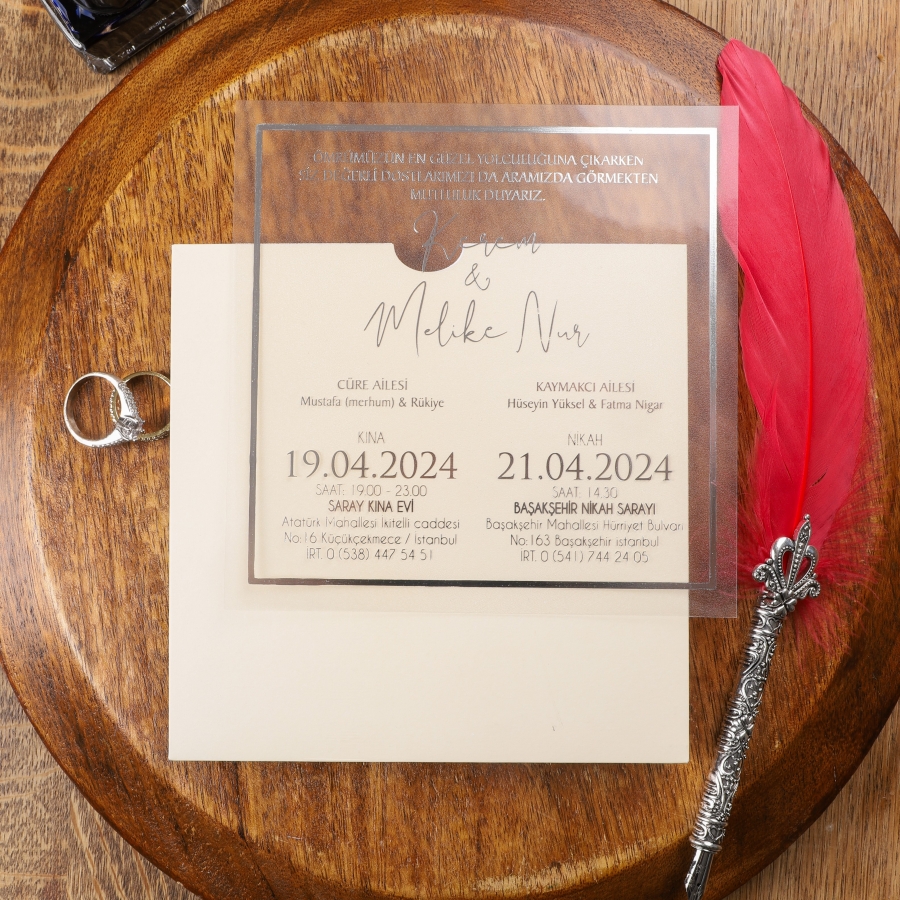 ÖMRÜMÜZÜN EN GÜZEL YOLCULUĞUNA ÇIKARKEN
SİZ DEĞERLİ DOSTLARIMIZI DA ARAMIZDA GÖRMEKTEN
MUTLULUK DUYARIZ.
Kerem
&
Melike Nur
CÜRE AİLESİ
Mustafa (merhum) & Rükiye
KAYMAKCI AİLESİ
Hüseyin Yüksel & Fatma Nigar
KINA
19.04.2024
SAAT: 19.00 - 23.00
SARAY KINA EVİ
Atatürk Mahallesi İkitelli caddesi
No:16 Küçükçekmece / İstanbul
İRT. 0 (538) 447 54 51
NİKAH
21.04.2024
SAAT: 14.30
BAŞAKŞEHİR NİKAH SARAYI
Başakşehir Mahallesi Hürriyet Bulvarı
No:163 Başakşehir istanbul
İRT. 0 (541) 744 24 05